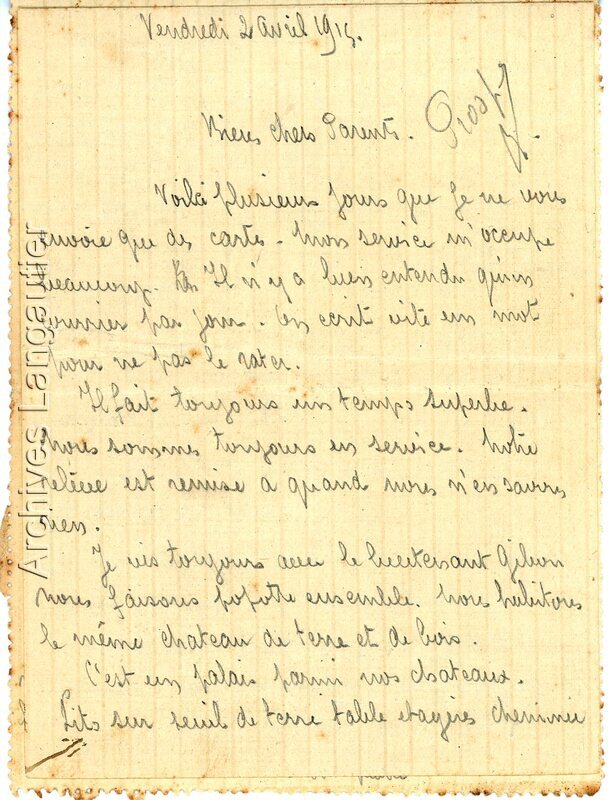 Vendredi 2 Avril 1915.
Biens chers Parents.
Voilà plusieurs jours que je ne vous
envoie que des cartes. Mon service m'occupe
beaucoup. Il n'y a bien entendu qu'un
courrier par jour. On écrit vite un mot
pour ne pas le rater.
Il fait toujours un temps superbe.
Nous sommes toujours en service. Notre
relève est remise a quand nous n'en savons
rien.
Je vis toujours avec le lieutenant
nous faisons popotte ensemble. Nous habitons
le même chateau de terre et de bois.
C'est un palais parmi nos chateaux.
Lits sur seuil de terre table etagères cheminée
Archives Langautier